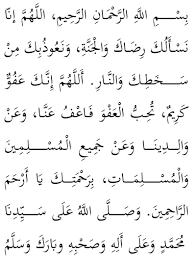 بِسْمِ اللَّهِ الرَّحْمَانِ الرَّحِيمِ، اللَّهُمَّ إِنَّا
نَسْأَلُكَ رِضَاكَ وَالْجَنَّةِ، وَنَعُوذُبِكَ مِنْ
سَخَطِكَ وَالنَّارِ. أَللَّهُمَّ إِنَّكَ عَفُوٌّ
كَرِيْمٌ، تُحِبُّ الْعَفْوَ فَاعْفُ عَنَّا، وَعَنْ
وَالِدِينَا وَعَنْ جَمِيعِ الْمُسْلِمِينَ
وَالْمُسْلِمَاتِ، بِرَحْمَتِكَ يَا أَرْحَمَ
الرَّاحِمِينَ. وَصَلَّى اللَّهُ عَلَى سَيِّدِنَا
مُحَمَّدٍ وَعَلَى أَلِهِ وَصَحْبِهِ وبَارَكَ وَسَلَّمَ